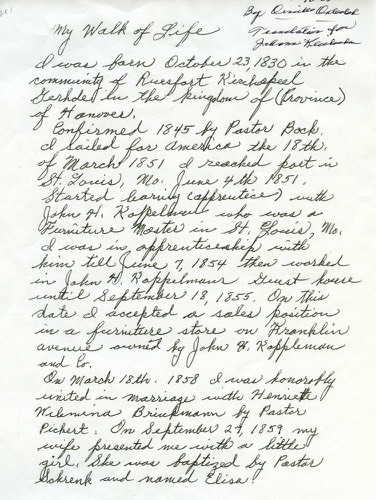 By
Translation for
My Walk of Life
I was born October 23, 1830 in the
community of Riverfort Kirchspeel
Gerhde in the kingdom of (Province)
of Hanover.
Confirmed 1845 by Pastor Bock.
I sailed for America the 18th.
of March 1851 I reached port in
St. Louis, Mo. June 4th 1851.
Started learning (apprentice) with
John H. Koppelman who was a
Furniture Master in St. Louis, Mo.
I was in apprenticeship with
him till June 7, 1854 then worked
in John H. Koppelmans Guest house
until September 18, 1855. On this
date I accepted a sales position
in a furniture store on Franklin
avenue owned by John H. Koppleman
and Co.
On March 18th. 1858 I was honorably
united in marriage with Henriett
Wilemina Brinkmann by Pastor
Pickert. On September 29, 1859 my
wife presented me with a little
girl. She was baptized by Pastor
Schrenk and named Elisa.